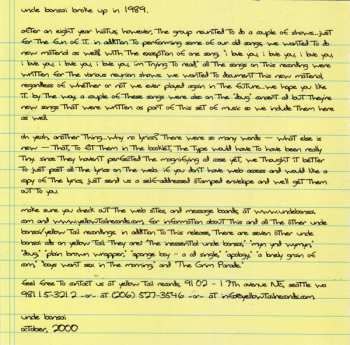 uncle bonsai broke up in 1989.
after an eight year hiatus, however, the group reunited to do a couple of shows...just
for the fun of it. in addition to performing some of our old songs, we wanted to do
new material as well. with the exception of one song, "i love you, i love you, i love
you, i love you, i love you, i love you, i'm trying to read," all the songs on this recording were
written for the various reunion shows. we wanted to document this new material,
regardless of whether or not we ever played again in the future...we hope you like
it. by the way, a couple of these songs were also on the "doug" concert cd but they're
new songs that were written as part of this set of music so we include them here
as well.
oh yeah, another thing...why no lyrics? there were so many words -- what else is
new -- that, to fit them in the booklet, the type would have to have been really
tiny. since they haven't perfected the magnifying cd case yet, we thought it better
to just post all the lyrics on the web. if you don't have web access and would like a
copy of the lyrics, just send us a self-addressed stamped envelope and we'll get them
out to you.
make sure you check out the web sites, and message boards, at www.unclebonsai.
com and www.yellowtailrecords.com for information about this and all the other uncle
bonsai/yellow tail recordings. in addition to this release, there are seven other uncle
bonsai cds on yellow tail. they are: "the inessential uncle bonsai," "myn ynd wymyn,"
"doug," "plain brown wrapper," "sponge boy - a cd single," "apology," "a lonely grain of
corn," "boys want sex in the morning" and "the grim parade."
feel free to contact us at yellow tail records, 9102 - 17th avenue NE, seattle wa
98115-3212 -or- at (206) 527-3546 -or- at info@yellowtailrecords.com
uncle bonsai
october, 2000